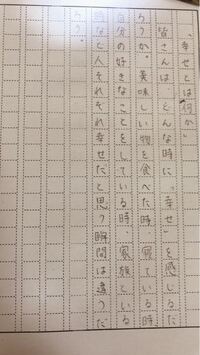 「幸せとは何か」
皆さんは、どんな時に「幸せ」を感じるだ
ろうか。美味しい物を食べた時、寝ている時、
自分の好きなことをしている時、家族といる
時など人それぞれ幸せだと思う瞬間は違うだ
ろう。